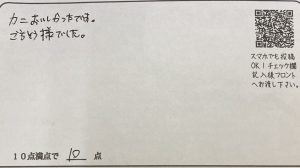 カニおいしかったです。
ごちそう様でした。
スマホでも投稿
OK！チェック欄
記入後フロント
へお渡し下さい。
10点満点で 10 点